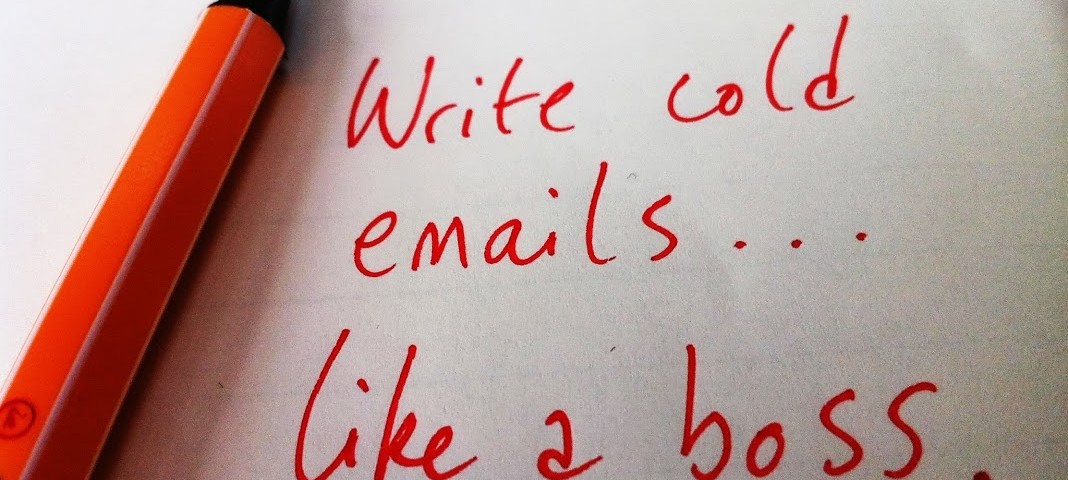 Write cold
emails...
like a boss.